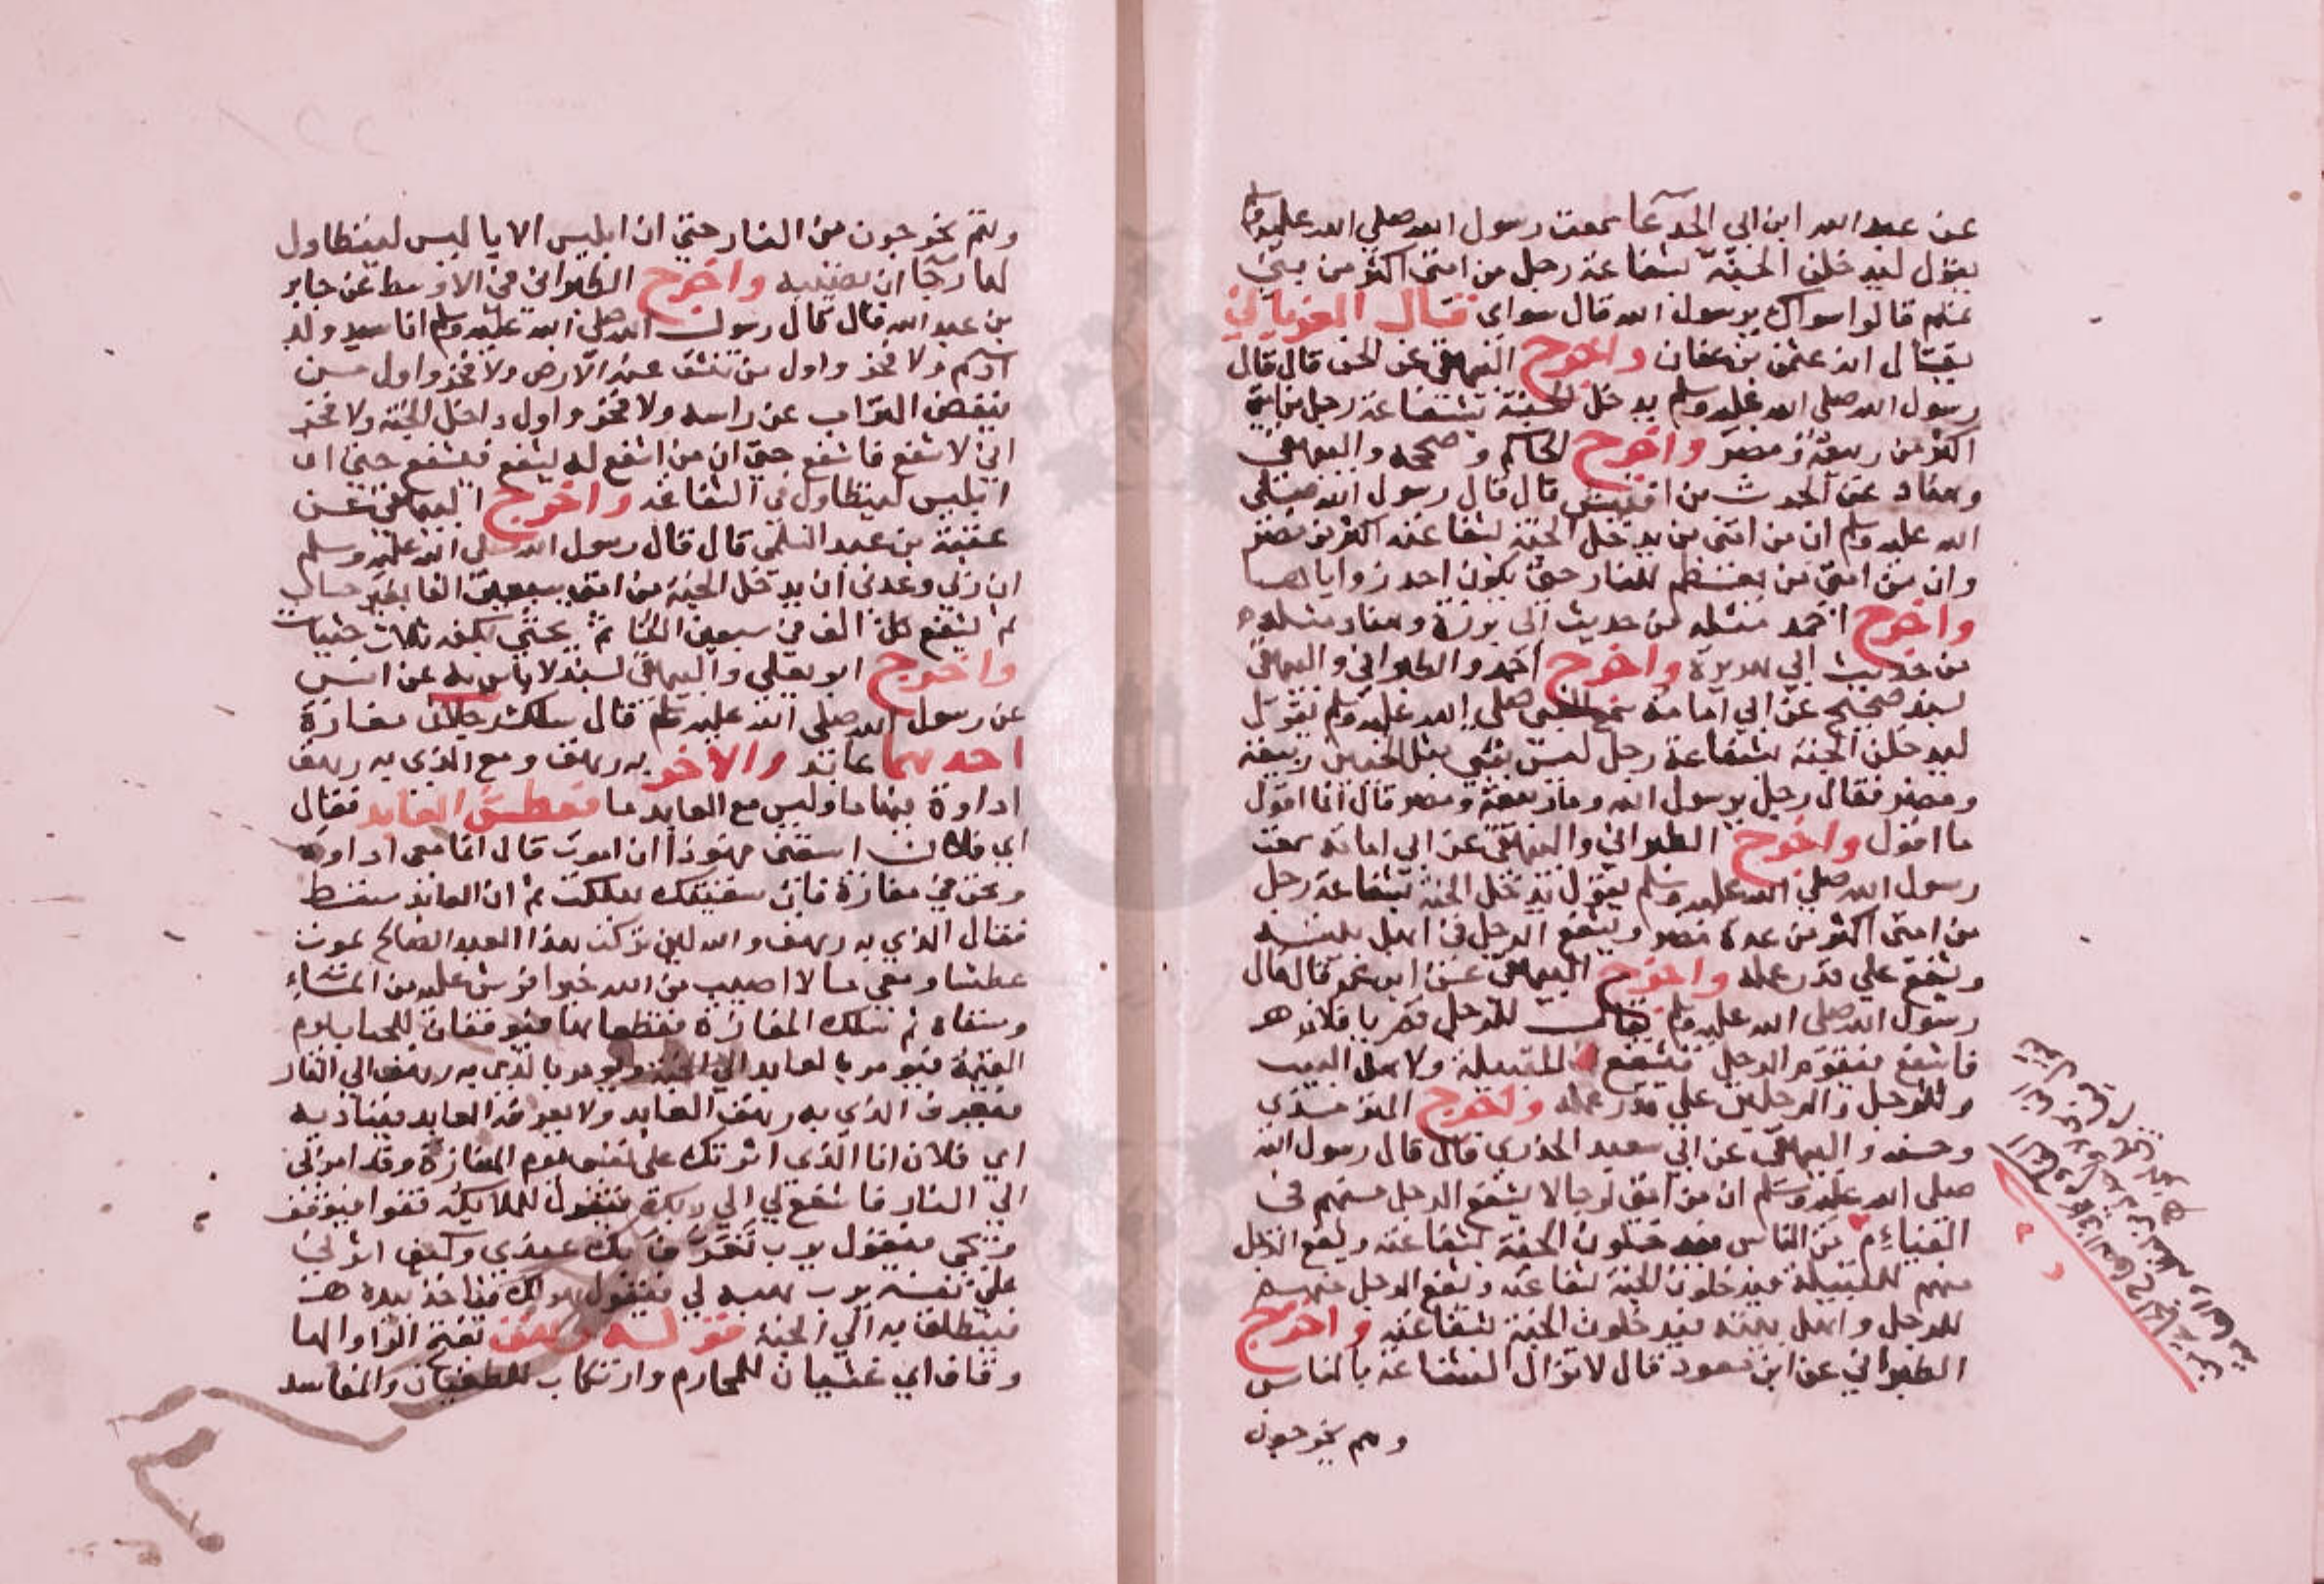 عن عبد الله ابن ابي الجدعا سمعت رسول الله صلي الله عليه وسلم
يقول ليدخلن الجنة بشفاعة رجل من امتي اكثر من بني
تميم قالوا سواك يرسول الله قال سواي قال الفريابي
يقال انه عثمن بن عفان واخرج البيهقي عن الحسن قال قال
رسول الله صلي الله عليه وسلم يدخل الجنة بشفاعة رجل من امتي
اكثر من ربيعة ومضر واخرج الحاكم وصححه والبيهقي
وهناد عن الحرث من اقيش قال قال رسول الله صلي
الله عليه وسلم ان من امتي من يدخل الجنة بشفاعته اكثر من مضر
وان من امتي من يعظم للنار حتي يكون احد زواياها
واخرج احمد مثله من حديث ابي برزة وهناد مثله
من حديث ابي هريرة واخرج احمد والطبراني والبيهقي
بسند صحيح عن ابي امامة سمع النبي صلي الله عليه وسلم يقول
ليدخلن الجنة بشفاعة رجل ليس بنبي مثل الحيين ربيعة
ومضر فقال رجل يرسول الله وما ربيعة ومضر قال انا اقول
ما اقول واخرج الطبراني والبيهقي عن ابي امامة سمعت
رسول الله صلي الله عليه وسلم يقول يدخل الجنة بشفاعة رجل
من امتي اكثر من عدة مضر ويشفع الرجل في اهل بيته
ويشفع علي قدر عمله واخرج البيهقي عن ابن عمر قال قال
رسول الله صلي الله عليه وسلم يقال للرجل قم يا فلان
فاشفع فيقوم الرجل فيشفع للقبيلة ولاهل البيت
وللرجل والرجلين علي قدر عمله واخرج الترمذي
وحسنه والبيهقي عن ابي سعيد الخدري قال قال رسول الله
صلي الله عليه وسلم ان من امتي لرجالا يشفع الرجل منهم في
الفياءم من الناس فيدخلون الجنة بشفاعته ويشفع الرجل
منهم للقبيلة فيدخلون الجنة بشفاعته ويشفع الرجل منهم
للرجل واهل بيته فيدخلون الجنة بشفاعته واخرج
الطبراني عن ابن مسعود قال لا تزال الشفاعة بالناس
وهم يخرجون
وهم يخرجون من النار حتي ان ابليس الابا ليس ليتطاول
لها رجا ان تصيبه واخرج الطبراني في الاوسط عن جابر
بن عبد الله قال قال رسول الله صلي الله عليه وسلم انا سيد ولد
آدم ولا فخر واول من تنشق عنه الارض ولا فخر واول من
ينفض التراب عن راسه ولا فخر واول داخل الجنة ولا فخر
اني لاشفع فاشفع حتي ان من اشفع له ليشفع فيشفع حتي ان
ابليس ليتطاول في الشفاعة واخرج البيهقي عن
عتبة بن عبد السلمي قال قال رسول الله صلي الله عليه وسلم
ان ربي وعدني ان يدخل الجنة من امتي سبعين الفا بغير حساب
ثم يشفع كل الف في سبعين الفا ثم يحثي بكفه ثلاث حثيات
واخرج ابو يعلي والبيهقي بسند لا باس به عن انس
عن رسول الله صلي الله عليه وسلم قال سلك رجلان مفازة
احدهما عابد والاخر به رهق ومع الذي به رهق
اداوة فيها ما وليس مع العابد ما فعطش العابد فقال
اي فلان اسقني فهوذا ان اموت قال انما معي اداوة
ونحن في مفازة فان سقيتك هلكت ثم ان العابد سقط
فقال الذي به رهق والله لين تركت هذا العبد الصالح يموت
عطشا ومعي ما لا اصيب من الله خيرا فرش عليه من الماء
وسقاه ثم سلك المفازة فقطعها فيوقفان للحساب يوم
القيمة فيومر بالعابد الي الجنة ويومر بالذي به رهق الي النار
فيعرف الذي به رهق العابد ولا يعرفه العابد فيناديه
اي فلان انا الذي اثرتك علي نفسي يوم المفازة وقد امر بي
الي النار فاشفع لي الي ربك فيقول للملايكة قفوا فيوقف
ويجي فيقول يرب تعرف يدك عندي وكيف اثرني
علي نفسه يرب هبه لي فيقول هو لك فياخذ بيده
فينطلق به الي الجنة قوله رهق بفتح الرا والها
وقاف اي غشيان للمحارم وارتكاب للطغيان والمفاسد